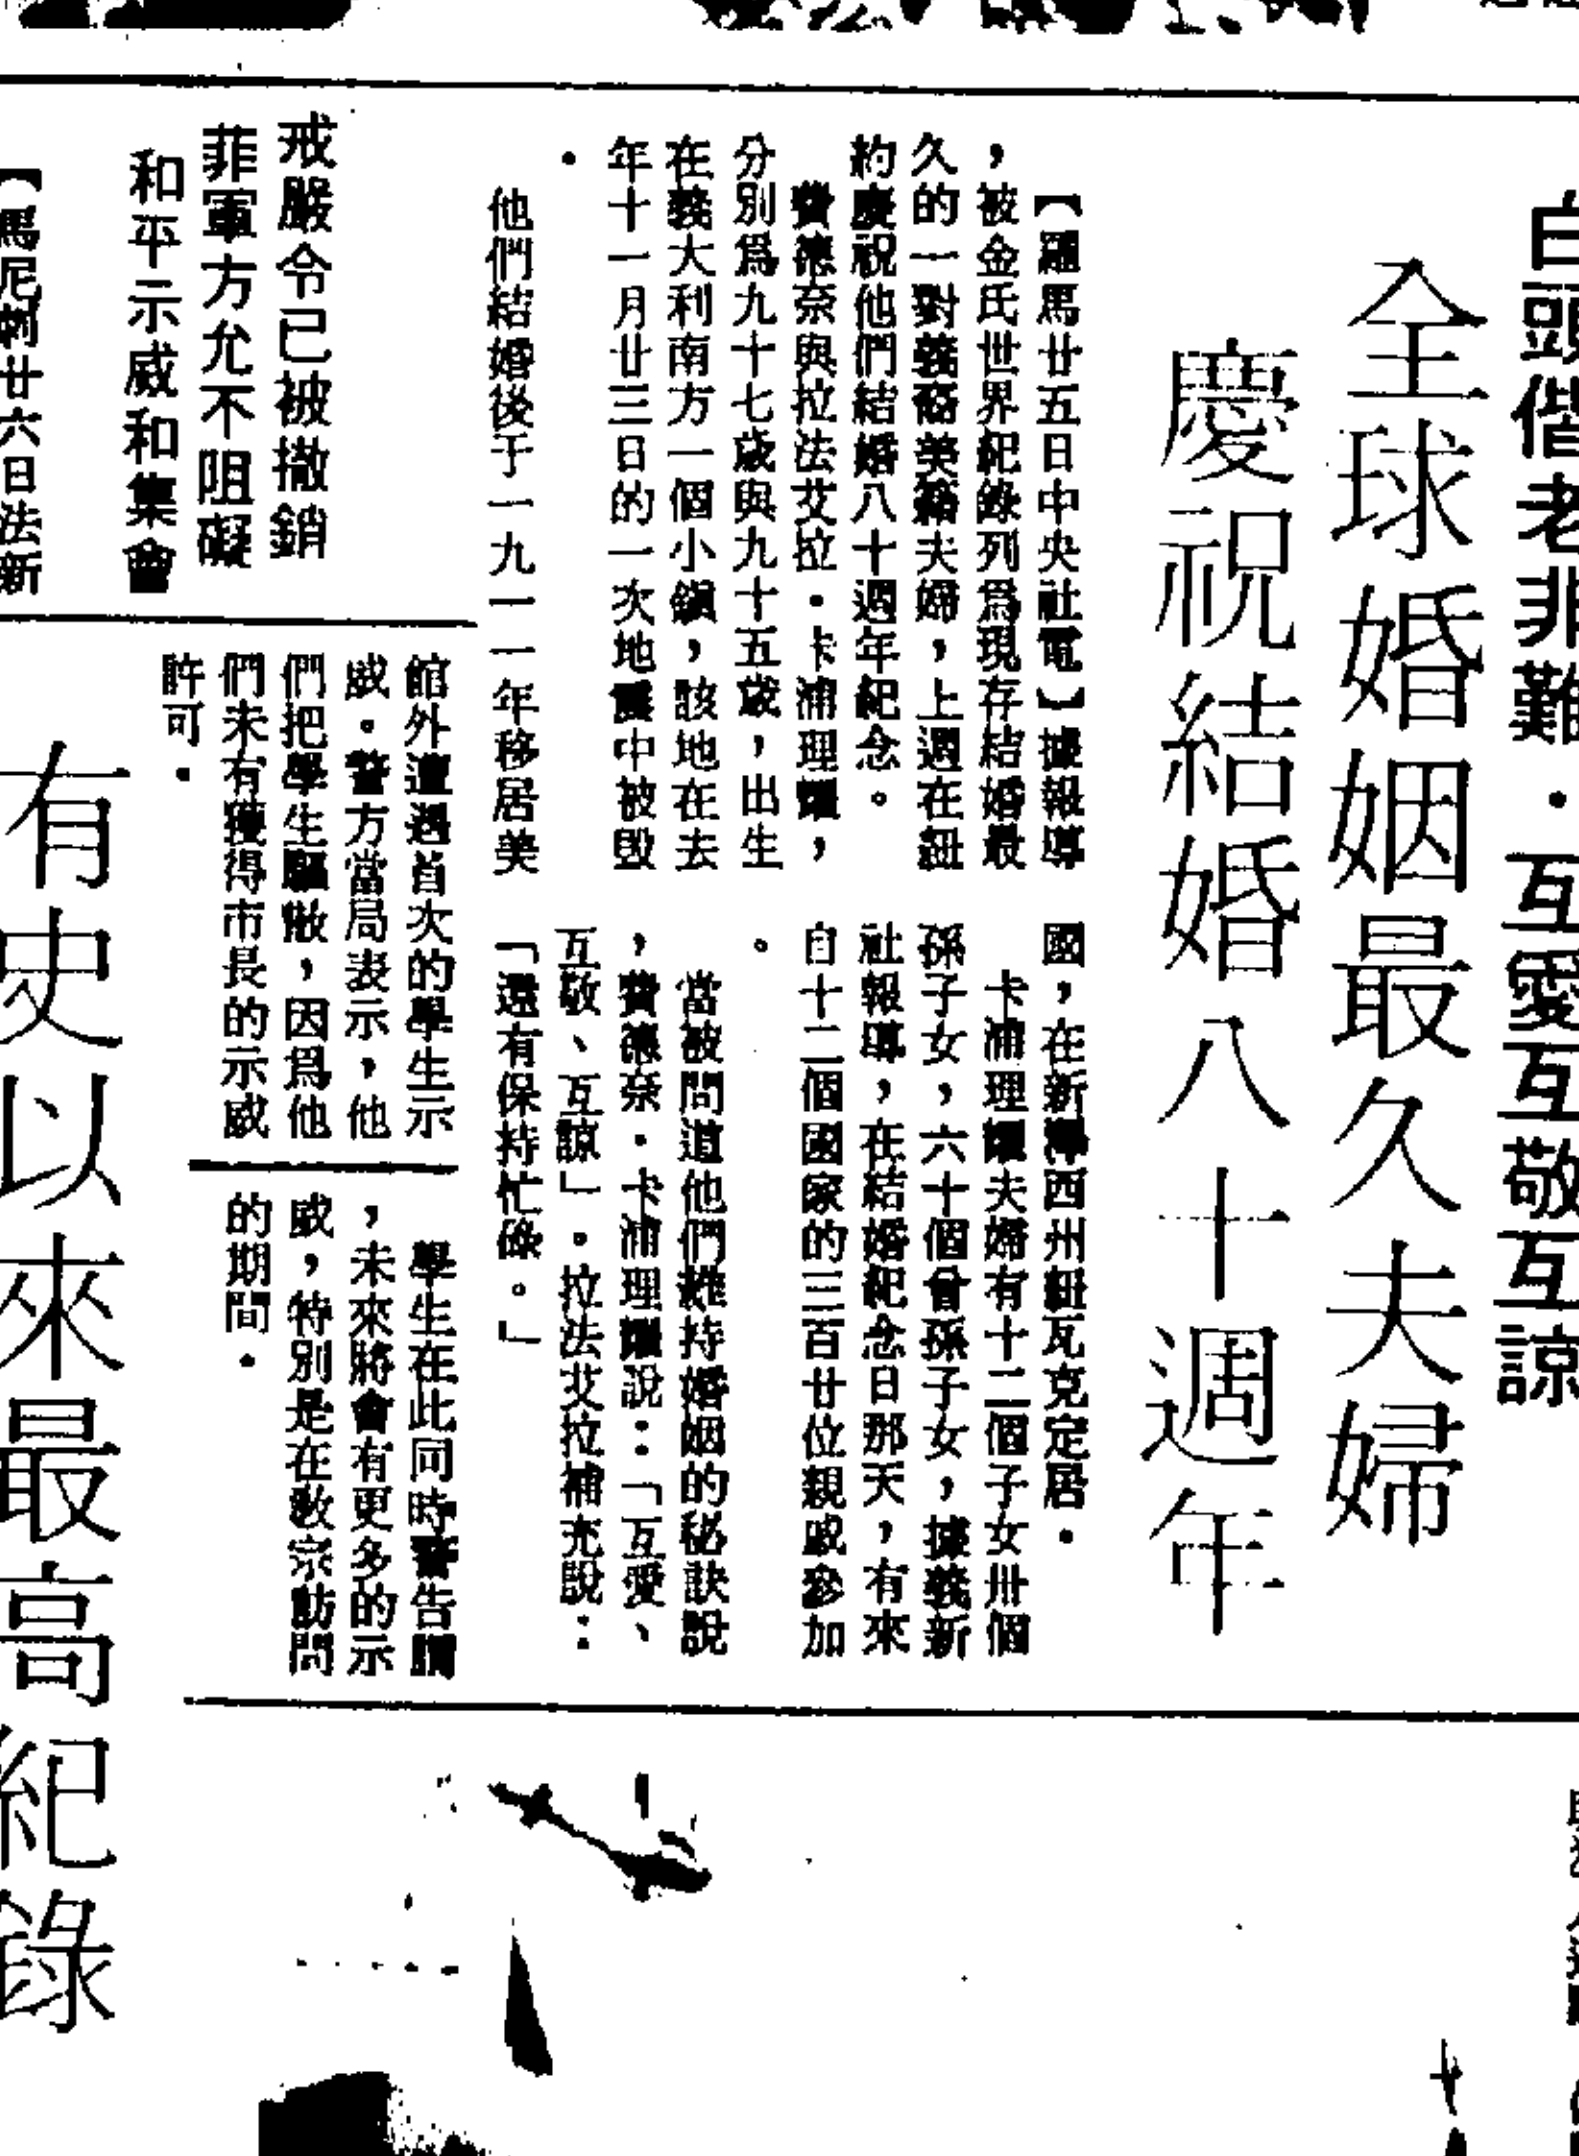 白頭偕老非難・互愛互敬互諒
全球婚姻最久夫婦
慶祝結婚八十週年
【羅馬廿五日中央社電】據報導
，被金氏世界紀錄列爲現存結婚最
久的一對義裔美籍夫婦，上週在紐
約慶祝他們結婚八十週年紀念。
費德奈與拉法艾拉・卡浦理
分別爲九十七歲與九十五歲，出生
在義大利南方一個小鎭，該地在去
年十一月廿三日的一次地震中被毀
・
他們結婚後于一九一一年移居美
國，在新澤西州紐瓦克定居・
卡浦理夫婦有十二個子女卅個
孫子女，六十個曾孫子女，據義新
社報導，在結婚紀念日那天，有來
自十二個國家的三百廿位親戚參加
。
當被問道他們維持婚姻的秘訣說
，費德奈・卡浦理說：「互愛、
互敬、互諒」。拉法艾拉補充說：
「還有保持忙碌。」
戒嚴令已被撤銷
菲軍方允不阻礙
和平示威和集會
【馬尼剌廿六日法新
館外遭遇首次的學生示
威。警方當局表示，他
們把學生驅散，因爲他
們未有獲得市長的示威
許可・
學生在此同時警告謂
，未來將會有更多的示
威，特別是在敎宗訪問
的期間・
有史以來最高紀錄